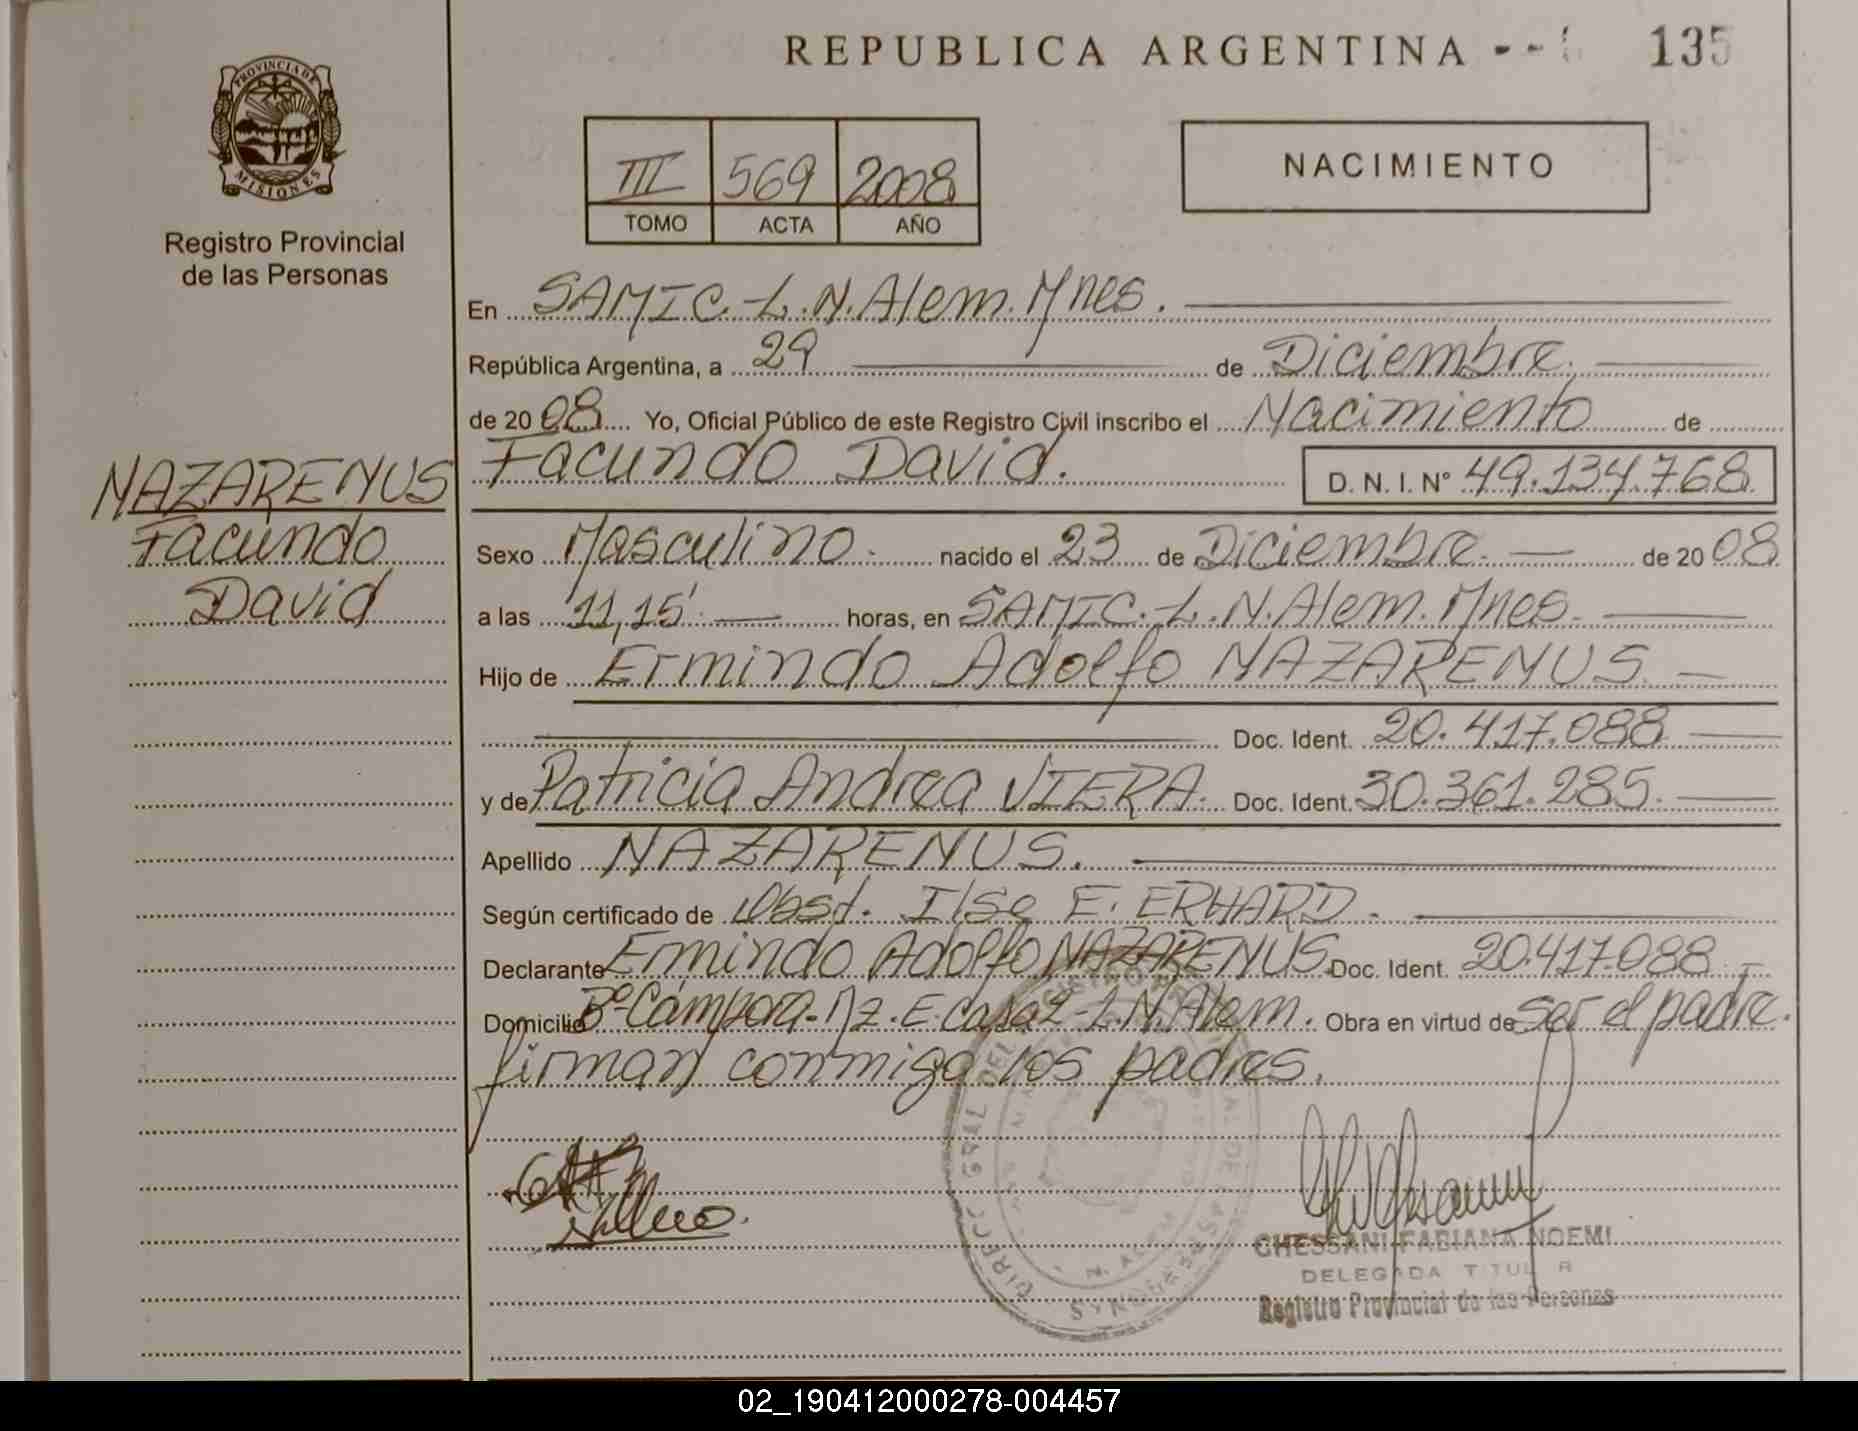 REPUBLICA ARGENTINA -- 135
PROVINCIA DE MISIONES
Registro Provincial
de las Personas
III 569 2008
TOMO ACTA AÑO
NACIMIENTO
En SAMIC. L.N. Alem. Mnes.
República Argentina, a 29 de Diciembre.
de 2008 Yo, Oficial Público de este Registro Civil inscribo el Nacimiento de
NAZARENUS
Facundo
David
Facundo David. D. N. I. Nº 49.134.768
Sexo Masculino. nacido el 23 de Diciembre. de 2008
a las 11,15' horas, en SAMIC. L.N. Alem. Mnes.
Hijo de Ermindo Adolfo NAZARENUS.
Doc. Ident. 20.417.088
y de Patricia Andrea VIERA. Doc. Ident. 30.361.285.
Apellido NAZARENUS.
Según certificado de Obst. Ilse E. ERHARD.
Declarante Ermindo Adolfo NAZARENUS. Doc. Ident. 20.417.088
Domicilio Bº Cámpora. Mz. E. Casa 2 - L.N. Alem. Obra en virtud de ser el padre.
firman conmigo los padres.
GHESSANI FABIANA NOEMI
DELEGADA TITULAR
Registro Provincial de las Personas
02_190412000278-004457